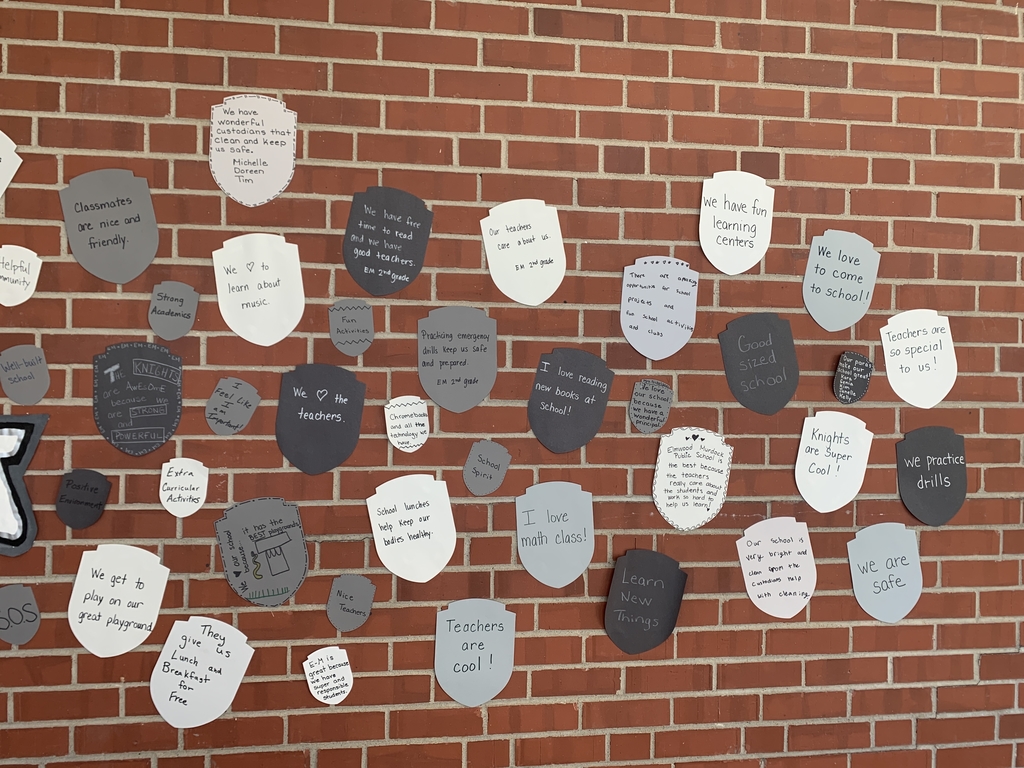 We have
wonderful
custodians that
clean and keep
us safe.
Michelle
Doreen
Tim
Classmates
are nice and
friendly.
We have free
time to read
and we have
good teachers.
EM 2nd grade
Our teachers
care about us.
EM 2nd grade
We have fun
learning
centers
Helpful
We ♡ to
learn about
music.
There are amazing
opportunities for school
projects and
fun school activities
and clubs
We love
to come
to school!
Strong
Academics
Fun
Activities
Practicing emergency
drills keep us safe
and prepared.
EM 2nd grade
Good
sized
school
Teachers are
so special
to us!
Well-built
school
The KNIGHTS
are AWESOME
because we
are STRONG
and
POWERFUL
I
Feel Like
I am
Important!
We ♡ the
teachers.
Chromebooks
and all the
technology we
have.
I love reading
new books at
school!
love
our school
because
we have a
wonderful
principal
Our
school great!
Kelly
School
Spirit
Elmwood Murdock
Public School is
the best because
the teachers
really care about
the students and
work so hard to
help us learn!
Knights
are Super
Cool!
We practice
drills
Positive
Extra
Curricular
Activities
We ♥ our school
because it has the
BEST playgrounds
School lunches
help keep our
bodies healthy.
I love
math class!
Our school is
very bright and
clean upon the
custodians help
with cleaning.
we are
safe
We get to
play on our
great playground.
Nice
Teachers
Learn
New
Things
They
give us
Lunch and
Breakfast
for
Free
E-M is
great because
we have
super and
responsible
students.
Teachers
are
cool!